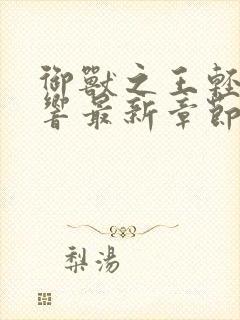 御獸之王輕
響最新章節
梨湯